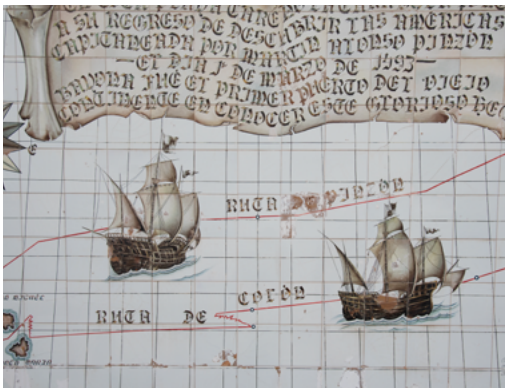 A SU REGRESO DE DESCUBRIR LAS AMERICAS
CAPITANEADA POR MARTIN ALONSO PINZÓN
—EL DIA 1 DE MARZO DE 1493—
BAYONA FUÉ EL PRIMER PUERTO DEL VIEJO
CONTINENTE EN CONOCER ESTE GLORIOSO HE
E
RUTA DE PINZÓN
COLÓN
RUTA DE